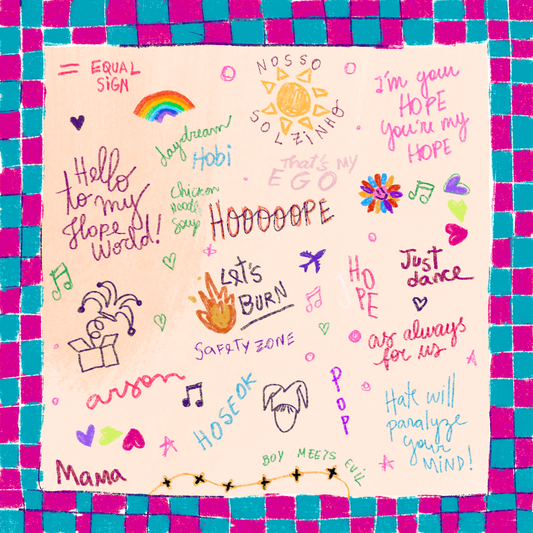 = EQUAL
SIGN
NOSSO
SOLZINHO
I'm your
HOPE
you're my
HOPE
daydream
Hobi
That's MY
EGO
Hello
to my
Hope
World!
Chicken
Noodle
Soup
HOOOOOPE
Let's
BURN
HOPE
Just
dance
SAFETY ZONE
as always
for us
arson
HOSEOK
POP
Hate will
paralyze
your
MIND!
BOY MEETS EVIL
Mama